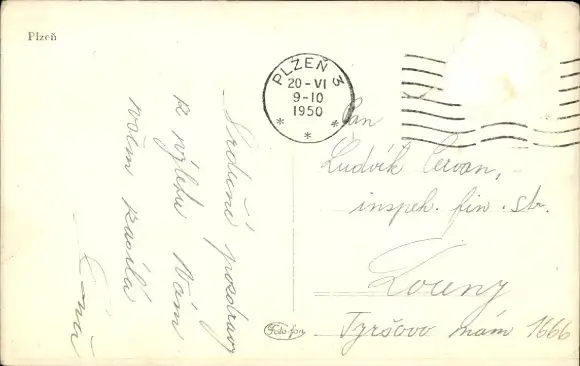 Plzeň
PLZEŇ 3
20-VI
9-10
1950
* * *
Srdečné pozdravy
z výletu Vám
všem zasílá
Pan
Ludvík
inspek. fin. str.
Louny
Tyršovo nám 1666
Fotofon